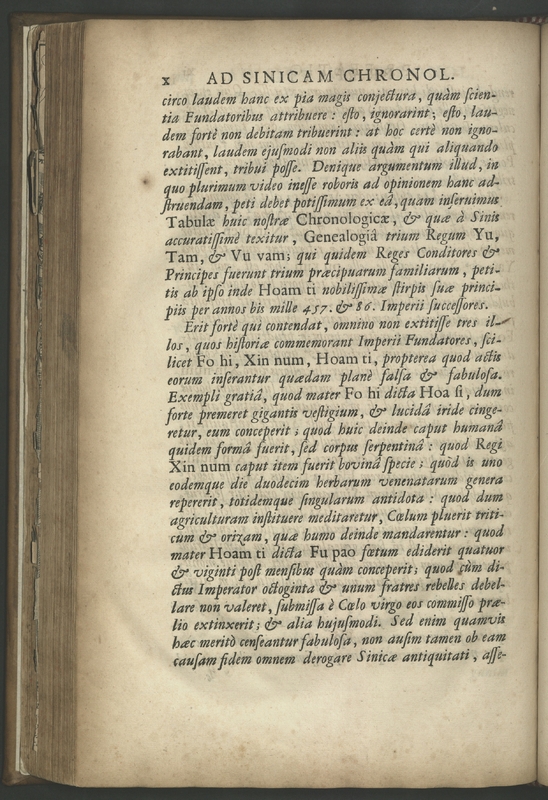 x AD SINICAM CHRONOL.
circo laudem hanc ex pia magis conjectura, quàm ſcien-
tia Fundatoribus attribuere: eſto, ignorarint; eſto, lau-
dem fortè non debitam tribuerint: at hoc certè non igno-
rabant, laudem ejuſmodi non aliis quàm qui aliquando
extitiſſent, tribui poſſe. Denique argumentum illud, in
quo plurimum video ineſſe roboris ad opinionem hanc ad-
ſtruendam, peti debet potiſſimum ex eâ, quam inſeruimus
Tabulæ huic noſtræ Chronologicæ, & quæ à Sinis
accuratiſſimè texitur, Genealogiâ trium Regum Yu,
Tam, & Vu vam; qui quidem Reges Conditores &
Principes fuerunt trium præcipuarum familiarum, peti-
tis ab ipſo inde Hoam ti nobiliſſimæ ſtirpis ſuæ princi-
piis per annos bis mille 457. & 86. Imperii ſucceſſores.
Erit fortè qui contendat, omnino non extitiſſe tres il-
los, quos hiſtoriæ commemorant Imperii Fundatores, ſci-
licet Fo hi, Xin num, Hoam ti, propterea quod actis
eorum inſerantur quædam planè falſa & fabuloſa.
Exempli gratiâ, quod mater Fo hi dicta Hoa ſi, dum
forte premeret gigantis veſtigium, & lucidâ iride cinge-
retur, eum conceperit; quod huic deinde caput humanâ
quidem formâ fuerit, ſed corpus ſerpentinâ: quod Regi
Xin num caput item fuerit bovinâ ſpecie; quòd is uno
eodemque die duodecim herbarum venenatarum genera
repererit, totidemque ſingularum antidota: quod dum
agriculturam inſtituere meditaretur, Cœlum pluerit triti-
cum & orizam, quæ humo deinde mandarentur: quod
mater Hoam ti dicta Fu pao fœtum ediderit quatuor
& viginti poſt menſibus quàm conceperit; quod cùm di-
ctus Imperator octoginta & unum fratres rebelles debel-
lare non valeret, ſubmiſſa è Cœlo virgo eos commiſſo præ-
lio extinxerit; & alia hujuſmodi. Sed enim quamvis
hæc meritò cenſeantur fabuloſa, non auſim tamen ob eam
cauſam fidem omnem derogare Sinicæ antiquitati, aſſe-